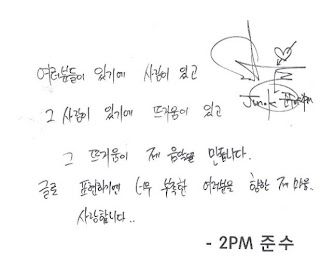 여러분들이 있기에 사랑이 있고
그 사랑이 있기에 뜨거움이 있고
그 뜨거움이 제 음악을 만듭니다.
글로 표현하기엔 너무 부족한 여러분을 향한 제 마음.
사랑합니다..
- 2PM 준수